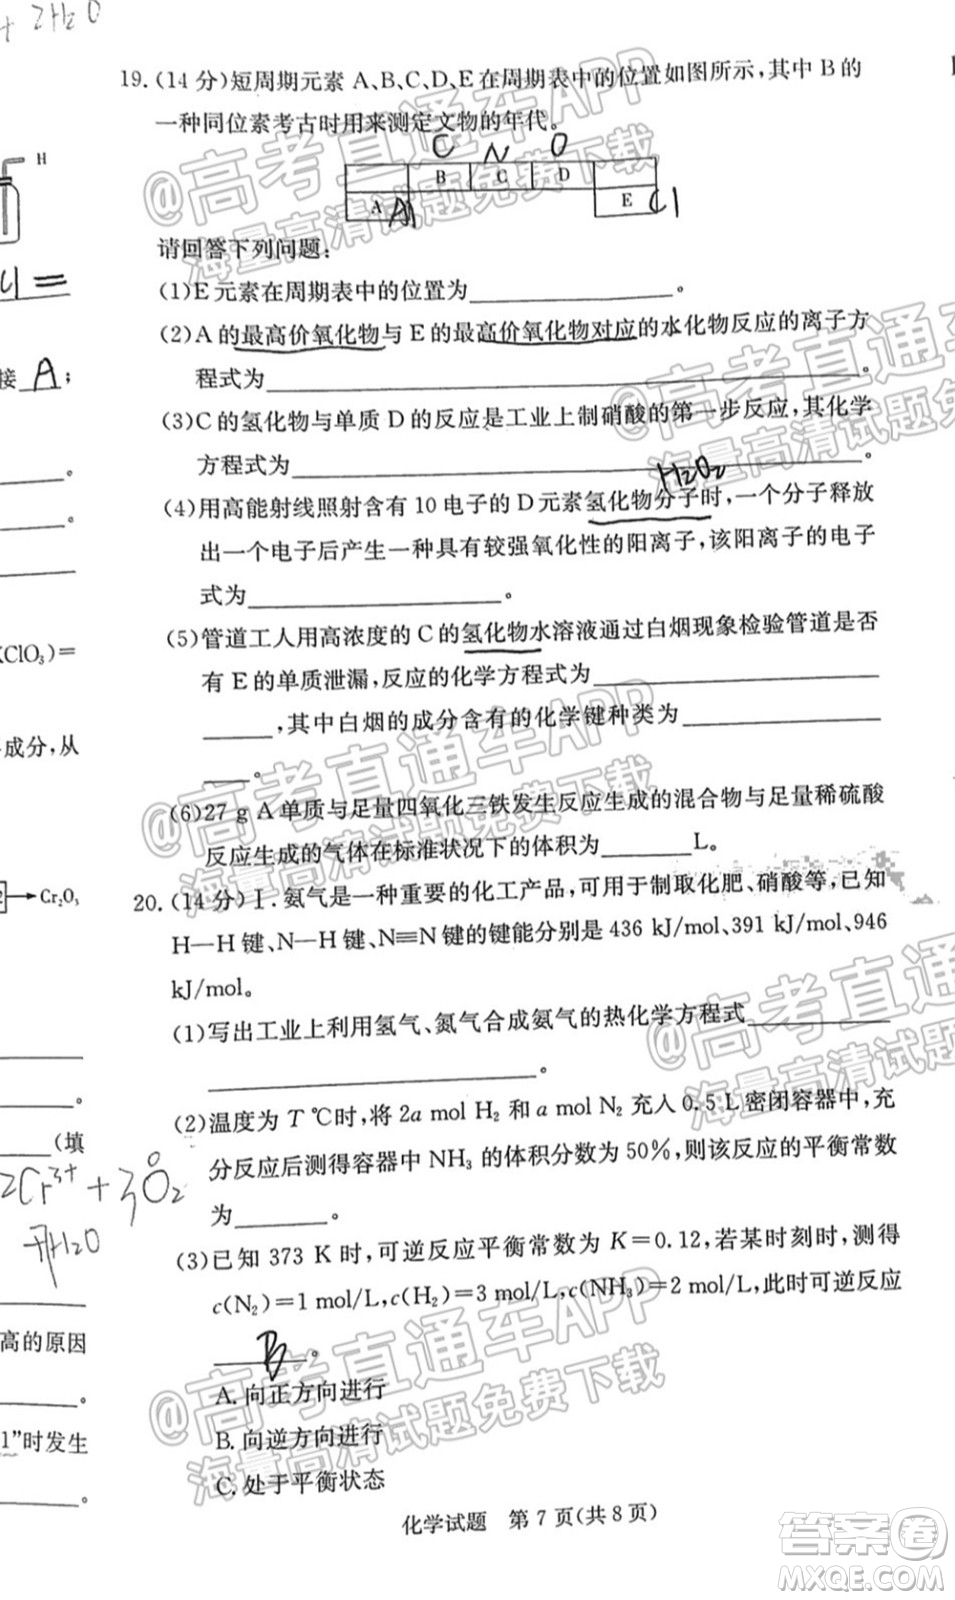 + 2H₂O
19.(14 分)短周期元素 A、B、C、D、E 在周期表中的位置如图所示,其中 B 的
一种同位素考古时用来测定文物的年代。
H
C N O
B C D
A Al E Cl
请回答下列问题:
(1)E 元素在周期表中的位置为________。
(2)A 的最高价氧化物与 E 的最高价氧化物对应的水化物反应的离子方
程式为________。
接 A ;
(3)C 的氢化物与单质 D 的反应是工业上制硝酸的第一步反应,其化学
方程式为________。
H₂O₂
(4)用高能射线照射含有 10 电子的 D 元素氢化物分子时,一个分子释放
出一个电子后产生一种具有较强氧化性的阳离子,该阳离子的电子
式为________。
(5)管道工人用高浓度的 C 的氢化物水溶液通过白烟现象检验管道是否
KClO₃)=
有 E 的单质泄漏,反应的化学方程式为________
____,其中白烟的成分含有的化学键种类为________
____。
成分,从
(6)27 g A 单质与足量四氧化三铁发生反应生成的混合物与足量稀硫酸
反应生成的气体在标准状况下的体积为______L。
→Cr₂O₃
20.(14 分)Ⅰ.氨气是一种重要的化工产品,可用于制取化肥、硝酸等,已知
H—H 键、N—H 键、N≡N 键的键能分别是 436 kJ/mol、391 kJ/mol、946
kJ/mol。
(1)写出工业上利用氢气、氮气合成氨气的热化学方程式________
________。
(2)温度为 T ℃时,将 2a mol H₂ 和 a mol N₂ 充入 0.5 L 密闭容器中,充
(填
分反应后测得容器中 NH₃ 的体积分数为 50%,则该反应的平衡常数
2Cr³⁺ + 3O₂
为______。
(3)已知 373 K 时,可逆反应平衡常数为 K=0.12,若某时刻时,测得
c(N₂)=1 mol/L,c(H₂)=3 mol/L,c(NH₃)=2 mol/L,此时可逆反应
高的原因
B 。
A. 向正方向进行
1”时发生
B. 向逆方向进行
C. 处于平衡状态
化学试题 第 7 页(共 8 页)
@高考直通车APP
海量高清试题免费下载
@高考直通车APP
海量高清试题免费下载
@高考直通车APP
海量高清试题免费下载
@高考直通车APP
海量高清试题免费下载
@高考直通车APP
海量高清试题免费下载
答案圈
MXQE.COM